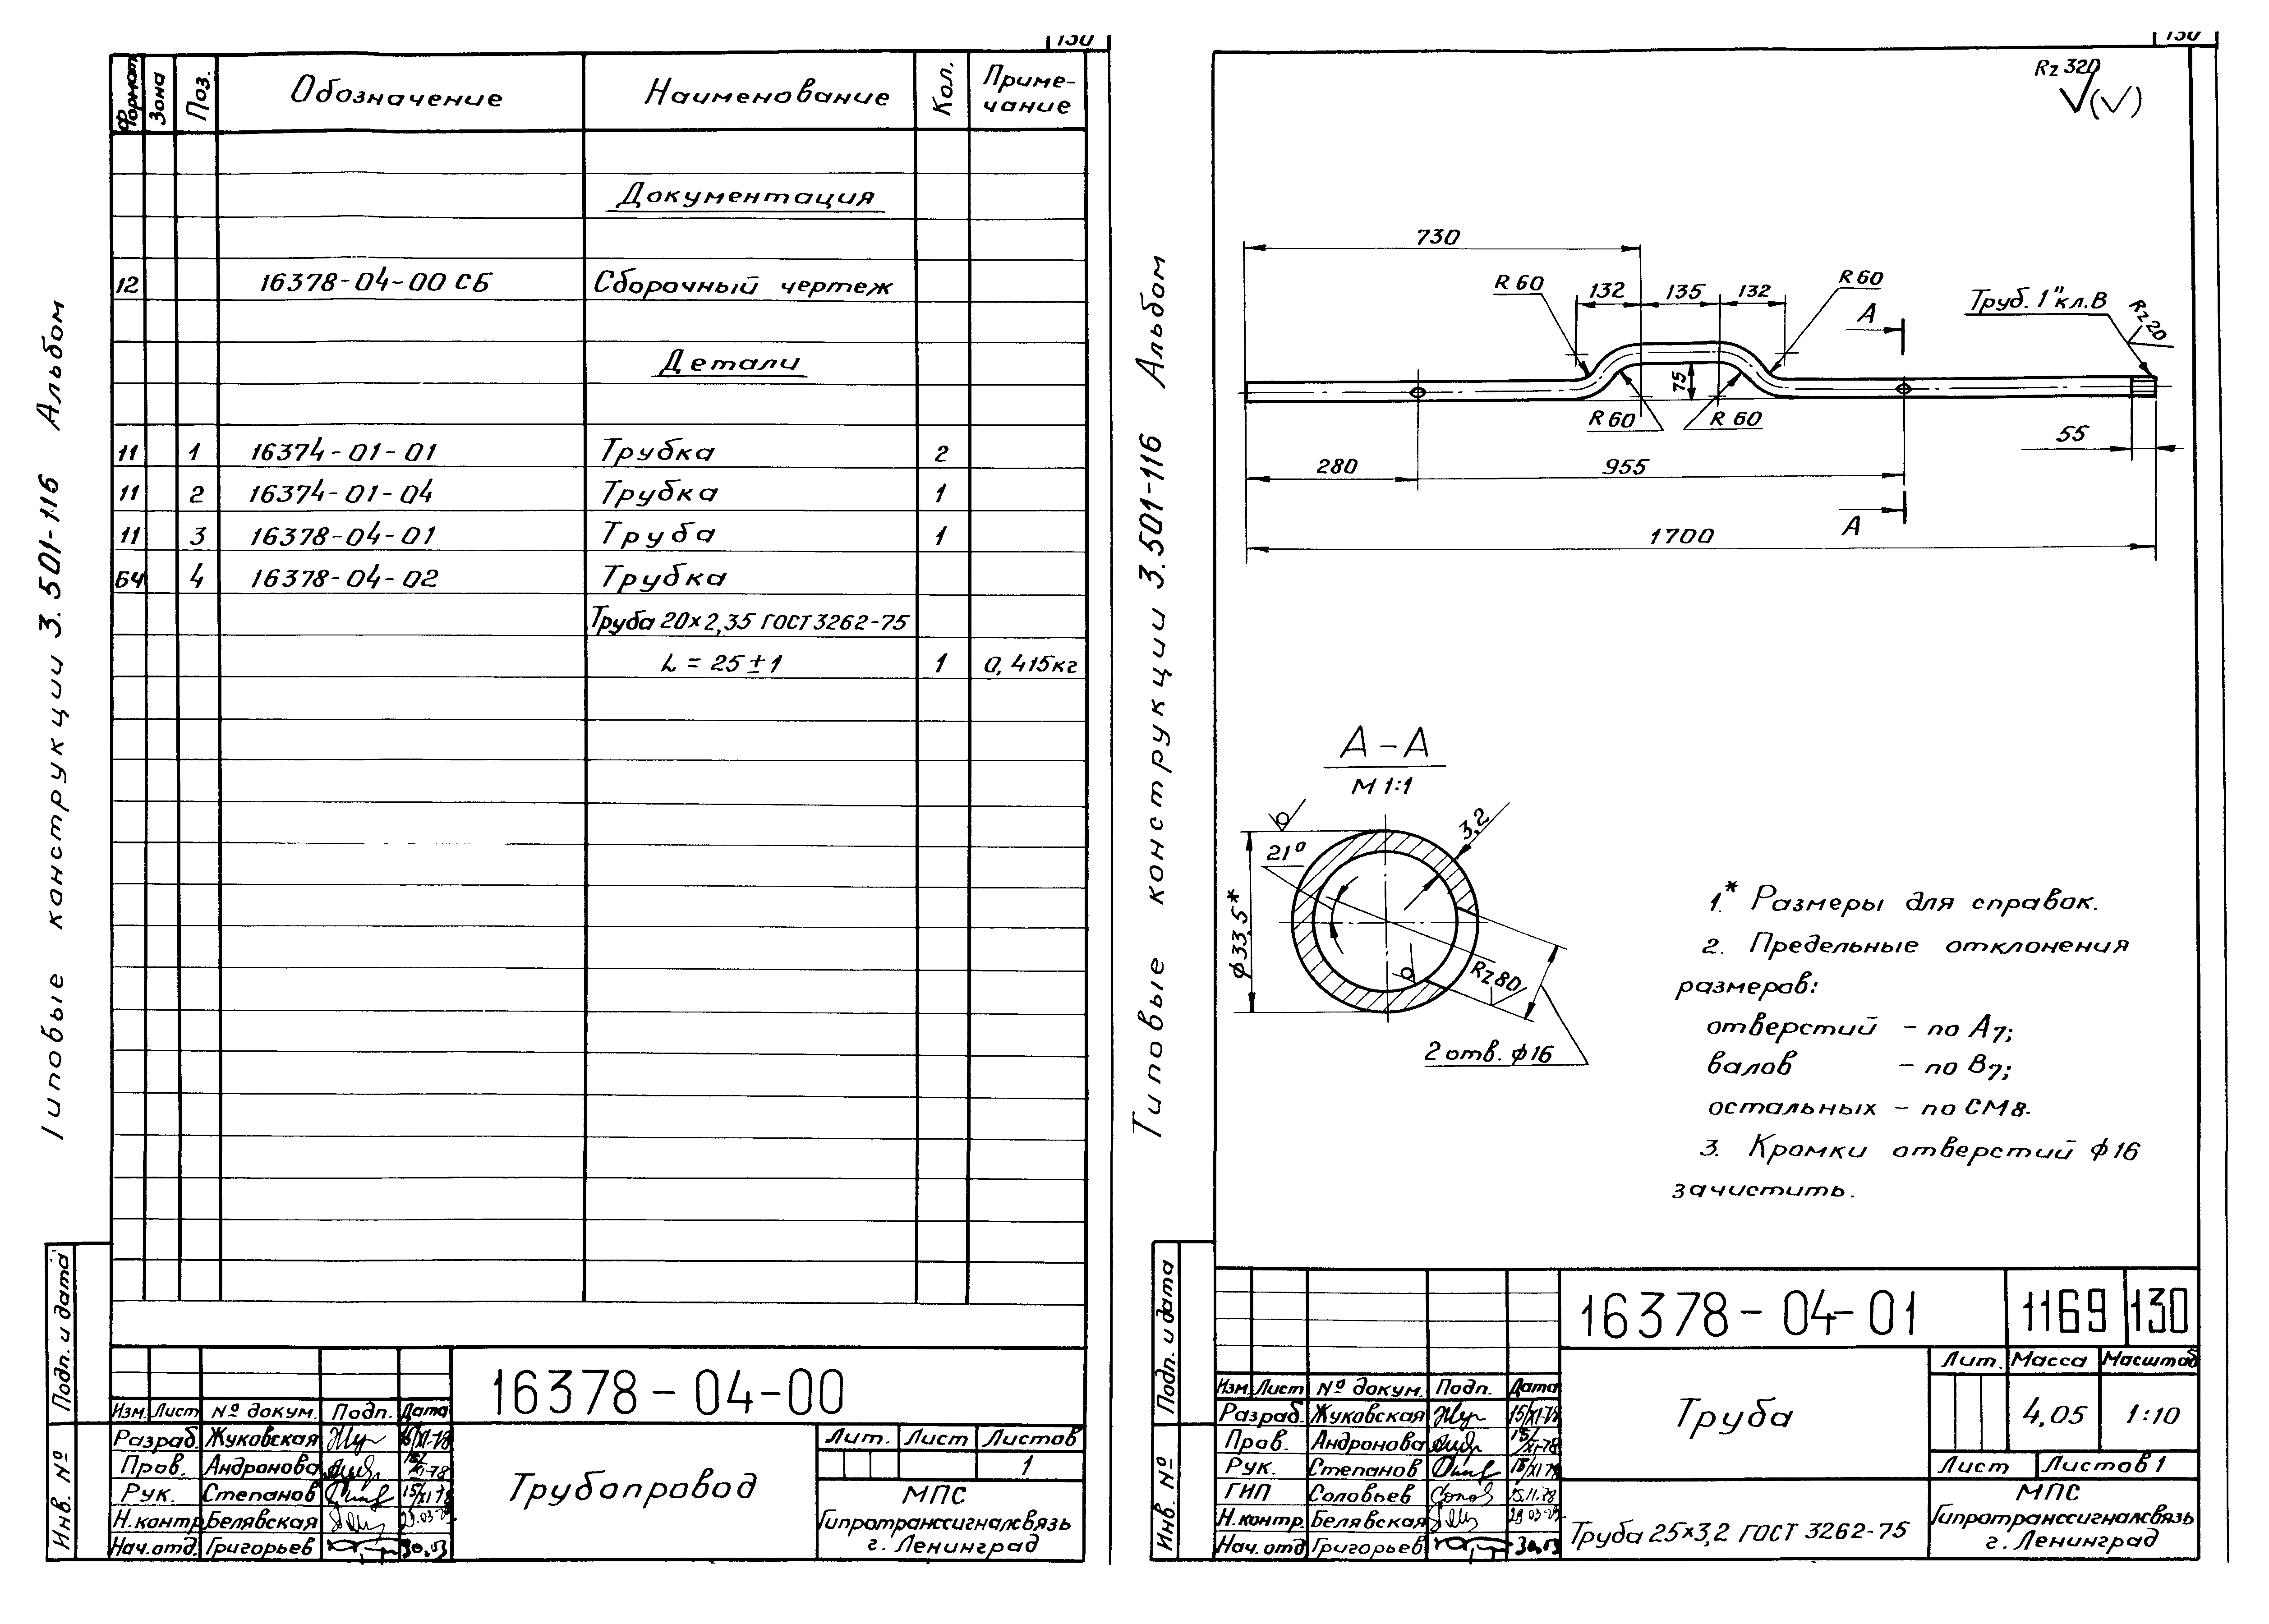 130
Формат Зона Поз. Обозначение Наименование Кол. Приме-
чание
Документация
12 16378-04-00 СБ Сборочный чертеж
Детали
11 1 16374-01-01 Трубка 2
11 2 16374-01-04 Трубка 1
11 3 16378-04-01 Труба 1
БЧ 4 16378-04-02 Трубка
Труба 20×2,35 ГОСТ 3262-75
L = 25 ± 1 1 0,415кг
Типовые конструкции 3.501-116 Альбом
Подп. и дата
Инв. №
16378-04-00
Изм. Лист № докум. Подп. Дата
Разраб. Жуковская 15/XI-78
Пров. Андронова 15/XI-78
Рук. Степанов 15/XI 78
Н.контр. Белявская
Нач.отд. Григорьев
Трубопровод
Лит. Лист Листов
1
МПС
Гипротранссигналсвязь
г. Ленинград
130
Rz 320
730
R 60 132 135 132 R 60
А
Труб. 1" кл. В
Rz 20
75
R 60 R 60
55
280 955
А
1700
А-А
М 1:1
3,2
21°
ф33,5*
Rz 80
2 отв. ф16
1.* Размеры для справок.
2. Предельные отклонения
размеров:
отверстий - по А7;
валов - по В7;
остальных - по СМ8.
3. Кромки отверстий ф16
зачистить.
Типовые конструкции 3.501-116 Альбом
Подп. и дата
Инв. №
16378-04-01 1169 130
Изм. Лист № докум. Подп. Дата
Разраб. Жуковская 15/XI-78
Пров. Андронова 15/XI-78
Рук. Степанов 15/XI 78
ГИП Соловьев 15.11.78
Н.контр. Белявская
Нач.отд. Григорьев
Труба
Лит. Масса Масштаб
4,05 1:10
Лист Листов 1
Труба 25×3,2 ГОСТ 3262-75
МПС
Гипротранссигналсвязь
г. Ленинград